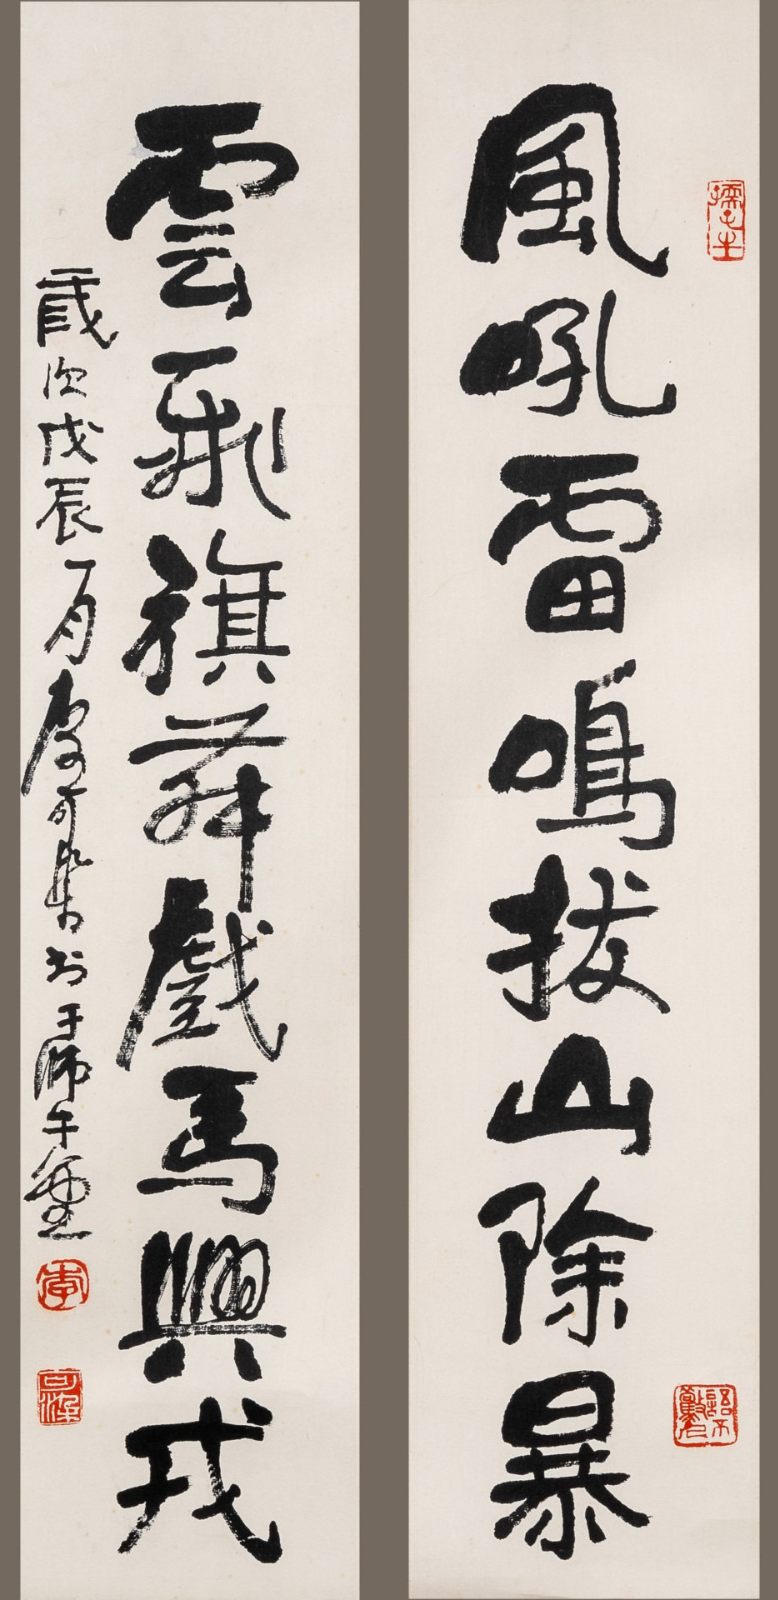 風吼雷鳴拔山除暴
雲飛旗舞戲馬興戎
歲次戊辰一月 可染書于師牛堂
孺子牛
李
可染